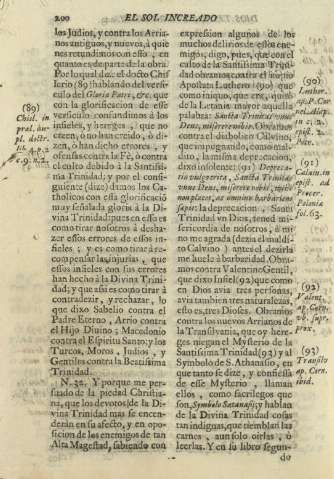 200 EL SOL INCREADO
los Judios, y contra los Arria-
nos antiguos, y nuevos, à quie
nes refundimos con esso, en
quanto es de parte de la obra.
Por lo qual do . el docto Chis
lerio (89) hablando del versi-
culo del Gloria Patri, &c. que
con la glorificacion de esse
versiculo confundimos à los
infieles, y hereges, que no
creen, ò no han creido, ò di-
zen, ò han dicho errores, y
ofensas contra la Fè, ò contra
el culto debido à la Santissi-
ma Trinidad; y por el consi-
guiente (dize) damos los Ca-
tholicos con esta glorificaciõ
muy señalada gloria à la Di-
vina Trinidad: pues en esso es
como tirar nosotros à desha-
zer essos errores de essos in-
fieles, y es como tirar à re-
compensar las injurias, que
essos infieles con sus errores
han hecho à la Divina Trini-
dad; y que assi es como tirar à
contradezir, y rechazar, lo
que dixo Sabelio contra el
Padre Eterno, Arrio contra
el Hijo Divino; Macedonio
contra el Espiritu Santo; y los
Turcos, Moros, Judios, y
Gentiles contra la Beatissima
Trinidad.
N. 32. Y porque me per-
suado de la piedad Christia-
na, que los devotos de la Di-
vina Trinidad mas se encen-
deràn en su afecto, y en opo-
sicion de los enemigos de tan
Alta Magestad, sabiendo con
(89)
Chisl. in
expression algunos de los
muchos delirios de essos ene-
migos, digo, pues, que con el
culto de la Santissima Trini-
dad obramos contra el impio
Apostata Luthero (90) que
como iniquo, que era, quitò
de la Letania mayor aquella
palabra: Sancta Trinitas unus
Deus, miserere nobis. Obramos
contra el diabolico Calvino,
que impugnando, como mal-
dito, la misma deprecacion,
dixo insolente: (91) Depreca-
tio vulgaris, Sancta Trinitas
unus Deus, miserere nobis, mihi
non placet, ac omnino barbariem
sapit: la deprecacion: Santa
Trinidad un Dios, tened mi-
sericordia de nosotros, à mi
no me agrada (dezia el maldi-
to Calvino) antes el dezirla
me huele à barbaridad. Obra-
mos contra Valencino Gentil,
que dixo infiel (92) que como
en Dios avia tres personas,
avia tambien tres naturalezas,
esto es, tres Dioses. Obramos
contra los nuevos Arrianos de
la Transilvania, que oy here-
ges niegan el Mysterio de la
Santissima Trinidad (93) y al
Symbolo de S. Athanasio, en
que tanto se dize, y confiessa
de esse Mysterio, llaman
ellos, como sacrilegos que
son, Symbolo Satanasij; y hablan
de la Divina Trinidad cosas
tan indignas, que tiemblan las
carnes, aun solo oirlas, ò
leerlas. Y en su libro segun-
do
(90)
Luther.
(91)
Calvin. in
epist. ad
Procer.
Polonia
fol. 63.
(92)
(93)